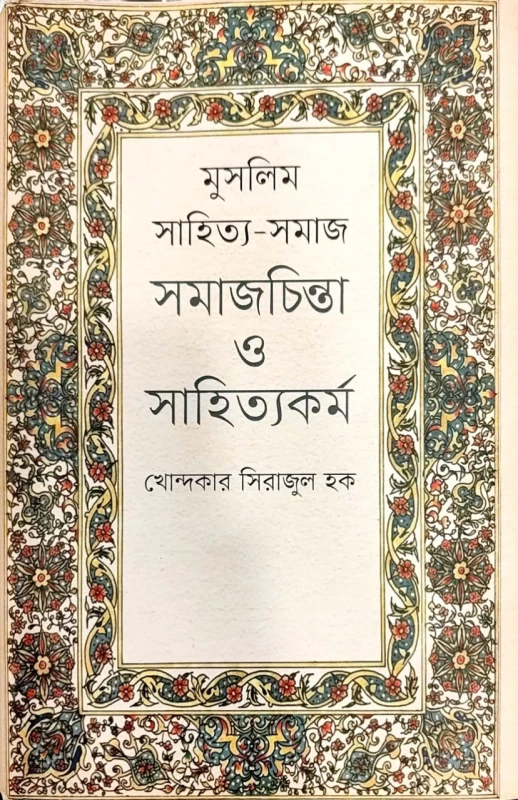 মুসলিম
সাহিত্য-সমাজ
সমাজচিন্তা
ও
সাহিত্যকর্ম
খোন্দকার সিরাজুল হক